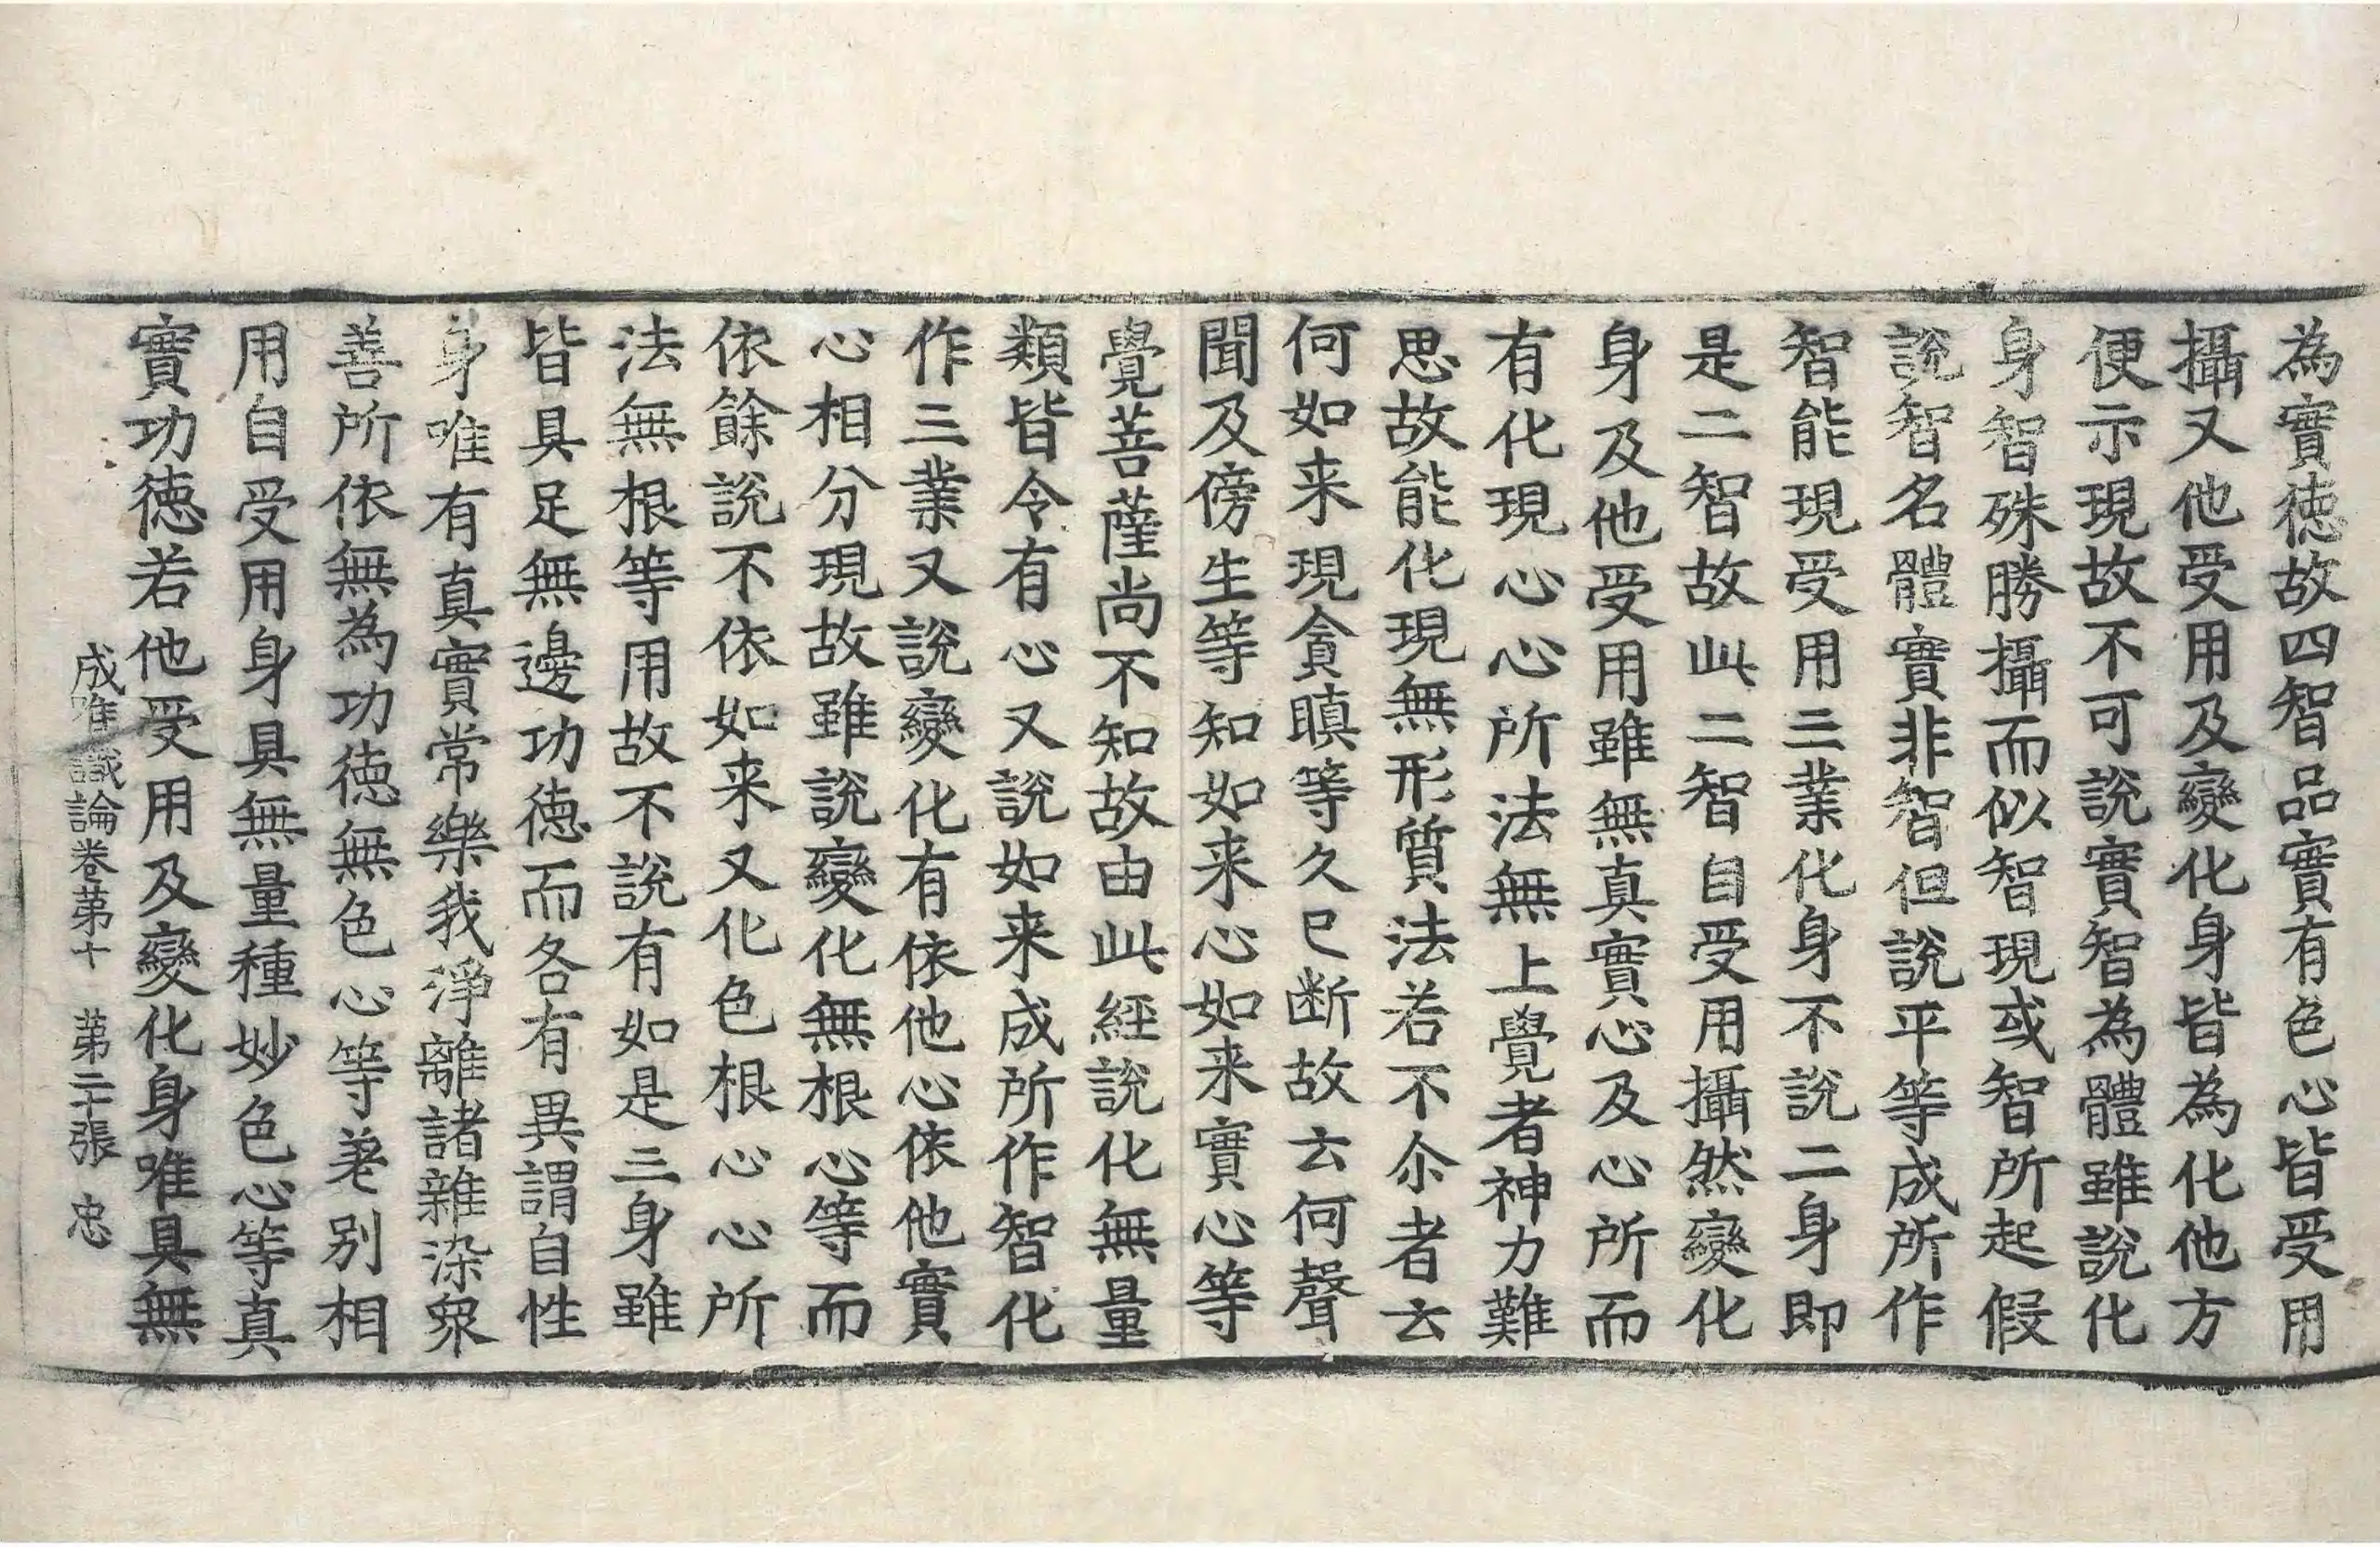 為實徳故四智品實有色心皆受用
攝又他受用及變化身皆為化他方
便示現故不可說實智為體雖說化
身智殊勝攝而似智現或智所起假
說智名體實非智但說平等成所作
智能現受用三業化身不說二身即
是二智故此二智自受用攝然變化
身及他受用雖無真實心及心所而
有化現心心所法無上覺者神力難
思故能化現無形質法若不尒者云
何如来現貪瞋等久已断故云何聲
聞及傍生等知如来心如来實心等
覺菩薩尚不知故由此經說化無量
類皆令有心又說如来成所作智化
作三業又說變化有依他心依他實
心相分現故雖說變化無根心等而
依餘說不依如来又化色根心心所
法無根等用故不說有如是三身雖
皆具足無邊功徳而各有異謂自性
身唯有真實常樂我淨離諸雜染衆
善所依無為功徳無色心等差别相
用自受用身具無量種妙色心等真
實功徳若他受用及變化身唯具無
成唯識論卷第十　第二十張　忠